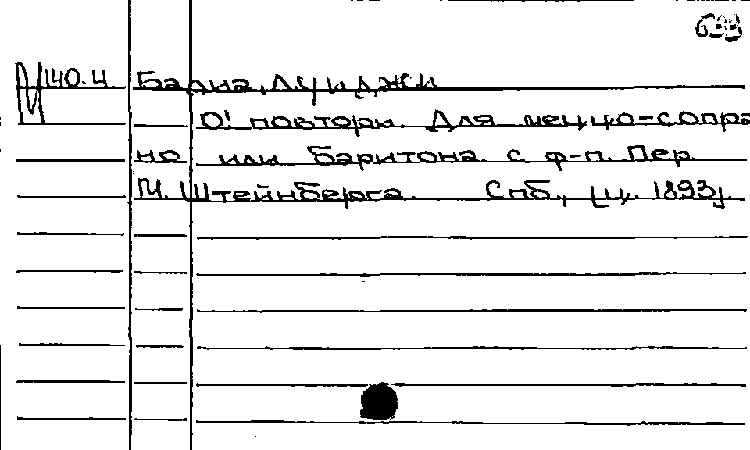 140.4 Бадиа, Луиджи
О! повтори. Для меццо-сопра
но или баритона с ф-п. Пер.
М. Штейнберга. Спб., [ц. 1893].